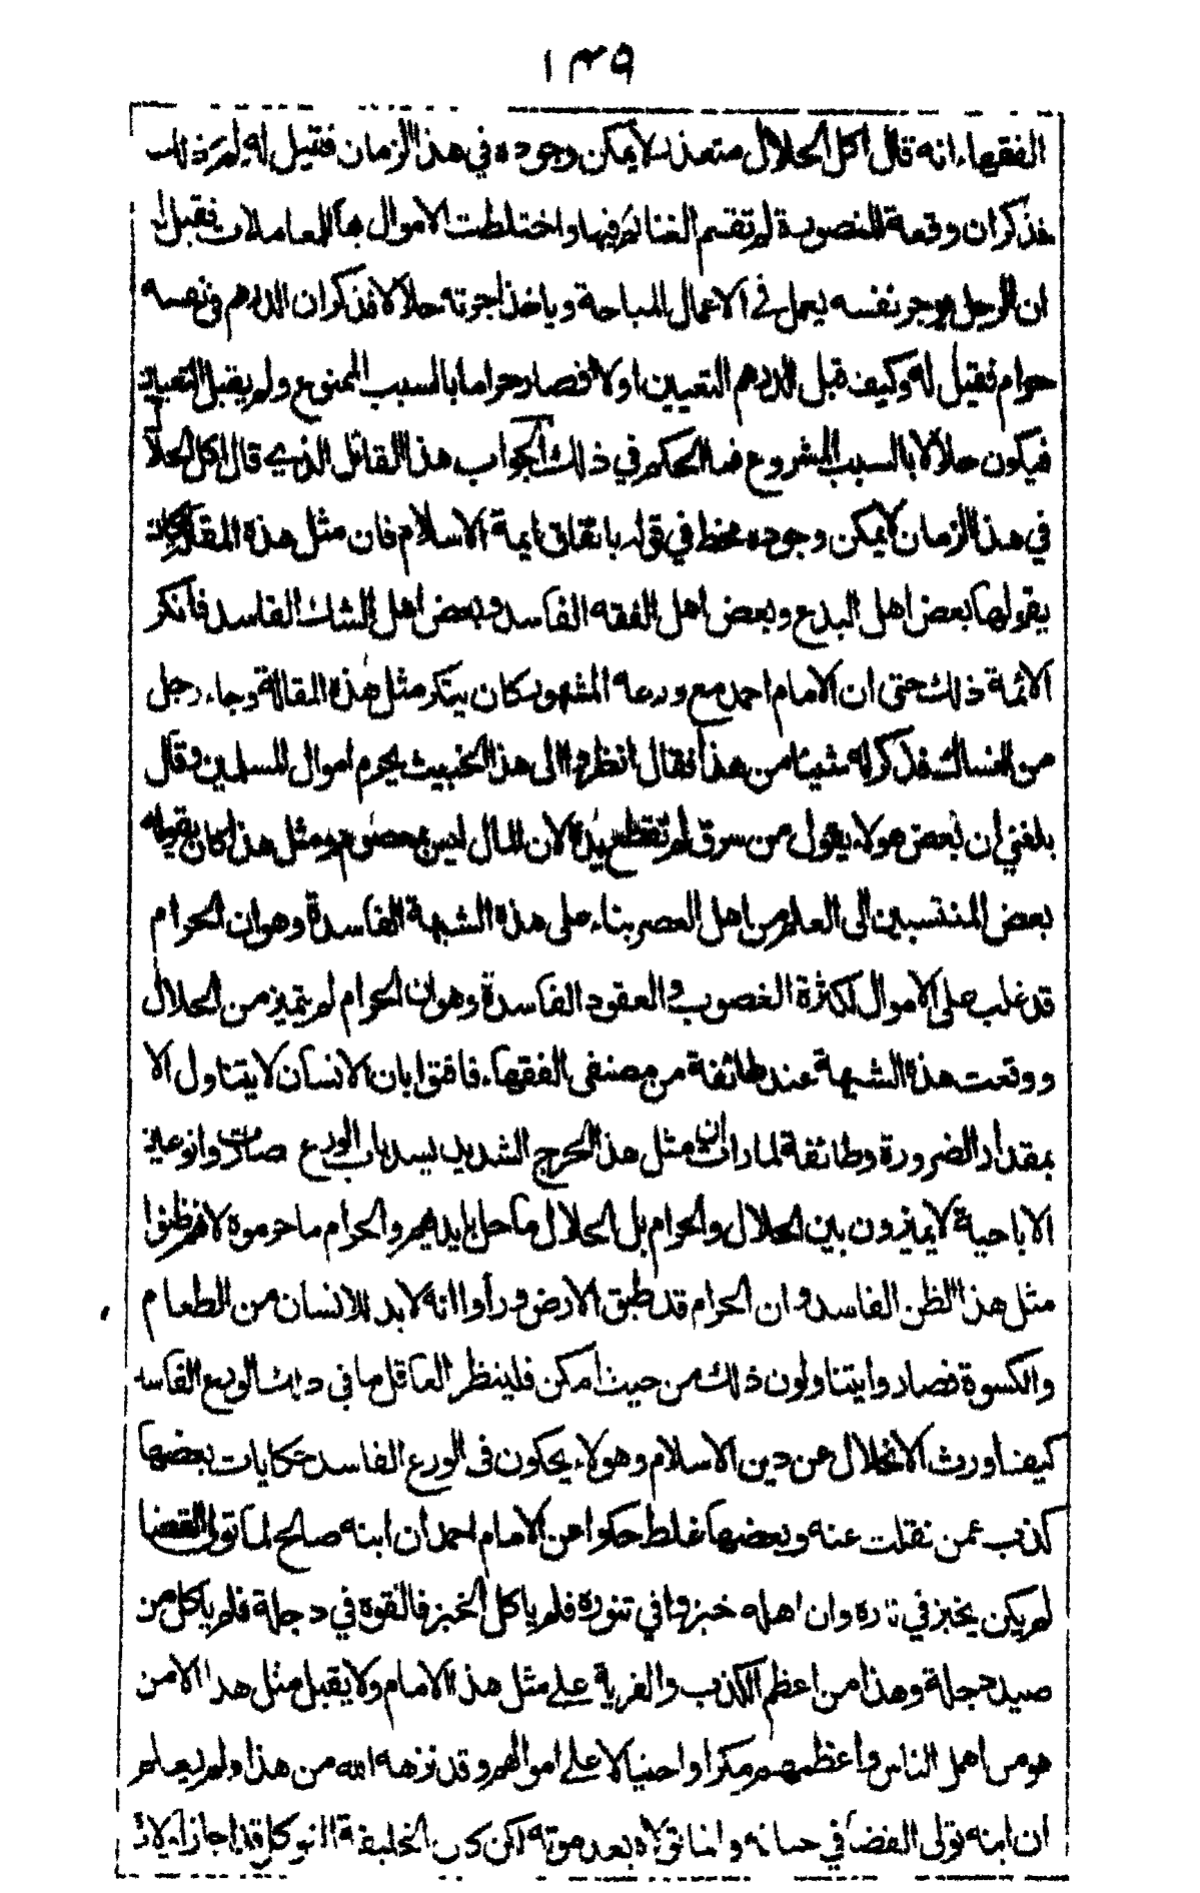 ١٣٩
الفقهاء انه قال اكل الحلال متعذر لا يمكن وجوده في هذا الزمان فقيل له لم ذلك
فذكر ان وقعة المنصورة لم تقسم الغنائم فيها واختلطت الاموال بالمعاملات فقيل له
ان الرجل يوجر نفسه يعمل في الاعمال المباحة وياخذ اجرته حلالا فذكر ان الدرهم في نفسه
حرام فقيل له وكيف قبل الدرهم التعيين اولا فصار حراما بالسبب الممنوع ولم يقبل التعيين
فيكون حلالا بالسبب المشروع فما الحكم في ذلك الجواب هذا القائل الذي قال اكل الحلال
في هذا الزمان لا يمكن وجوده مخط في قوله باتفاق ايمة الاسلام فان مثل هذه المقالة كان
يقولها بعض اهل البدع وبعض اهل الفقه الفاسد وبعض اهل الشك الفاسد فانكر
الائمة ذلك حتى ان الامام احمد مع ورعه المشهور كان ينكر مثل هذه المقالة وجاء رجل
من النساك فذكر له شيئا من هذا فقال انظروا الى هذا الخبيث يحرم اموال المسلمين وقال
بلغني ان بعض هولاء يقول من سرق لم تقطع يده لان المال ليس بمعصوم ومثل هذا كان يقوله
بعض المنتسبين الى العلم من اهل العصر بناء على هذه الشبهة الفاسدة وهو ان الحرام
قد غلب على الاموال لكثرة الغصوب والعقود الفاسدة وهو ان الحرام لم يتميز من الحلال
ووقعت هذه الشبهة عند طائفة من مصنفى الفقهاء فافتوا بان الانسان لا يتناول الا
بمقدار الضرورة وطائفة لما رات ان مثل هذا الحرج الشديد يسد باب الورع صارت نوعين
الاباحية لا يميزون بين الحلال والحرام بل الحلال ما حل بايديهم والحرام ما حرموه لانهم ظنوا
مثل هذا الظن الفاسد وان الحرام قد طبق الارض وراوا انه لا بد للانسان من الطعام
والكسوة فصاروا يتناولون ذلك من حيث امكن فلينظر العاقل ما في ذلك الورع الفاسد
كيف اورث الانحلال عن دين الاسلام وهولاء يحكون فى الورع الفاسد حكايات بعضها
كذب عمن نقلت عنه وبعضها غلط حكوا عن الامام احمد ان ابنه صالح لما تولى القضا
لم يكن يخبز في داره وان اهله خبزوا في تنوره فلم ياكل الخبز فالقوه في دجلة فلم ياكل من
صيد دجلة وهذا من اعظم الكذب والفرية على مثل هذا الامام ولا يقبل مثل هذا الا من
هو من اجهل الناس واعظمهم مكرا واحتيالا على اموالهم وقد نزهه الله من هذا ولم يعلم
ان ابنه تولى القضا في حياته وانما تولاه بعد موته لكن كان الخليفة المتوكل قد اجاز اولاد